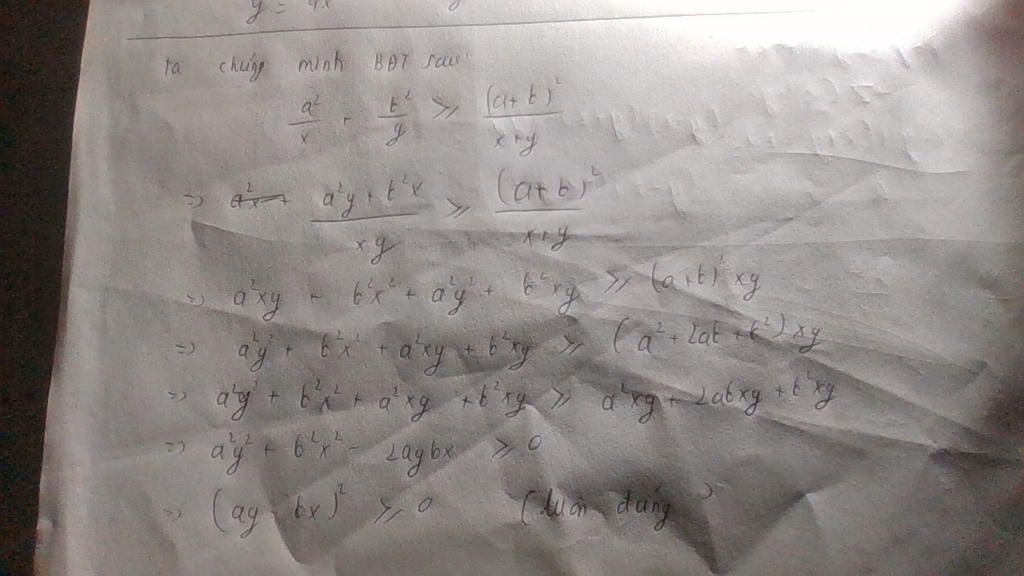 y = 4x y
ta chứng minh BĐT sau:
a²/x + b²/y ≥ (a+b)²/x+y
=> (a²y + b²x)/xy ≥ (a+b)²/x+y
=> a²xy + b²x² + a²y² + b²xy ≥ (a+b)²xy
=> a²y² + b²x² + a²xy + b²xy ≥ (a² + 2ab + b²)xy
=> a²y² + b²x² + a²xy + b²xy ≥ a²xy + 2abxy + b²xy
=> a²y² + b²x² - 2aybx ≥ 0
=> (ay - bx)² ≥ 0 (luôn đúng)